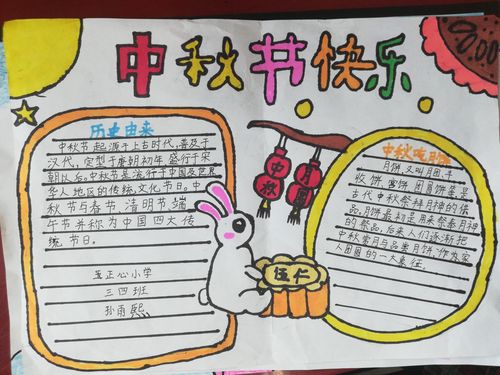 中秋节快乐
历史由来
中秋节起源于上古时代,普及于
汉代,定型于唐朝初年,盛行于宋
朝以后,中秋节是流行于中国及世界
华人地区的传统文化节日。中
秋节与春节 清明节 端
午节并称为中国四大传
统节日。
玉正心小学
三四班
孙雨熙
中秋
月圆
中秋吃月饼
月饼又叫月团、丰
收饼、宫饼、团圆饼等是
古代中秋祭拜月神的供
品,月饼最初是用来祭奉月神
的祭品,后来人们逐渐把
中秋赏月与品尝月饼,作为家
人团圆的一大象征。
伍仁